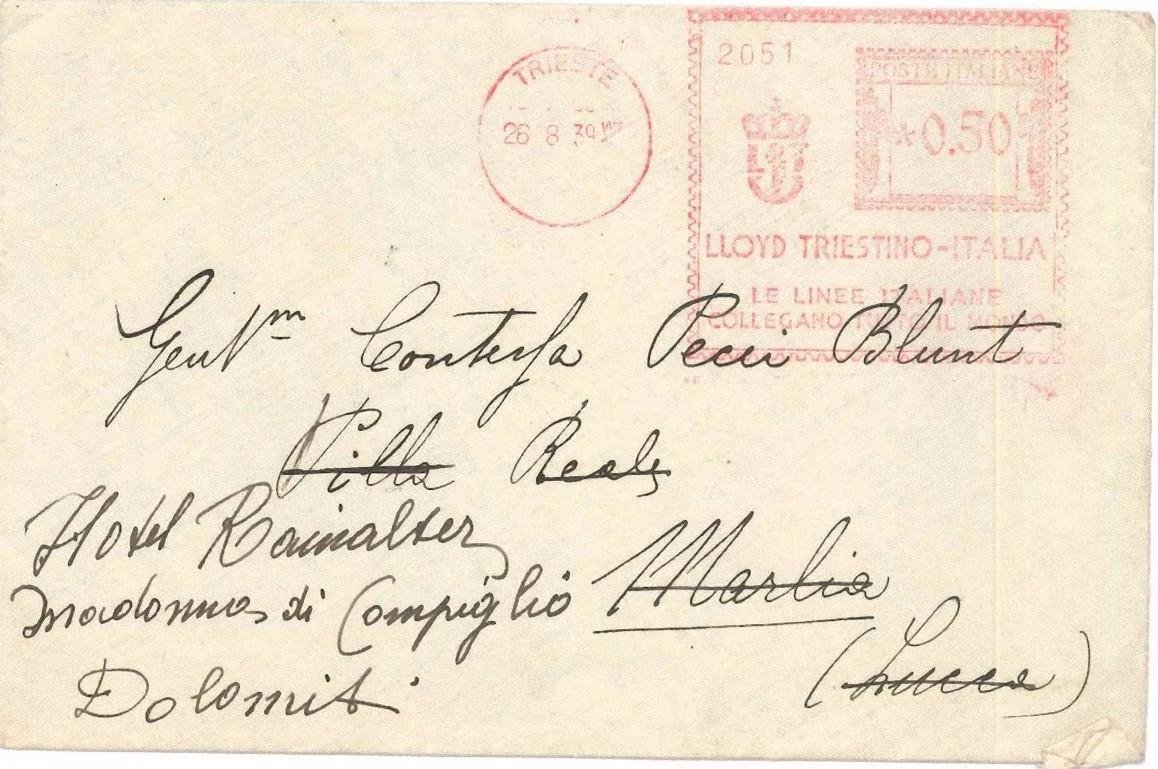 TRIESTE
26 8 39
2051
POSTE ITALIANE
*0.50
LLOYD TRIESTINO-ITALIA
LE LINEE ITALIANE
COLLEGANO TUTTO IL MONDO
Gentm Contessa Pecci Blunt
Villa Reale
Hotel Rainalter
Marlia
madonna di Campiglio
(Lucca)
Dolomiti